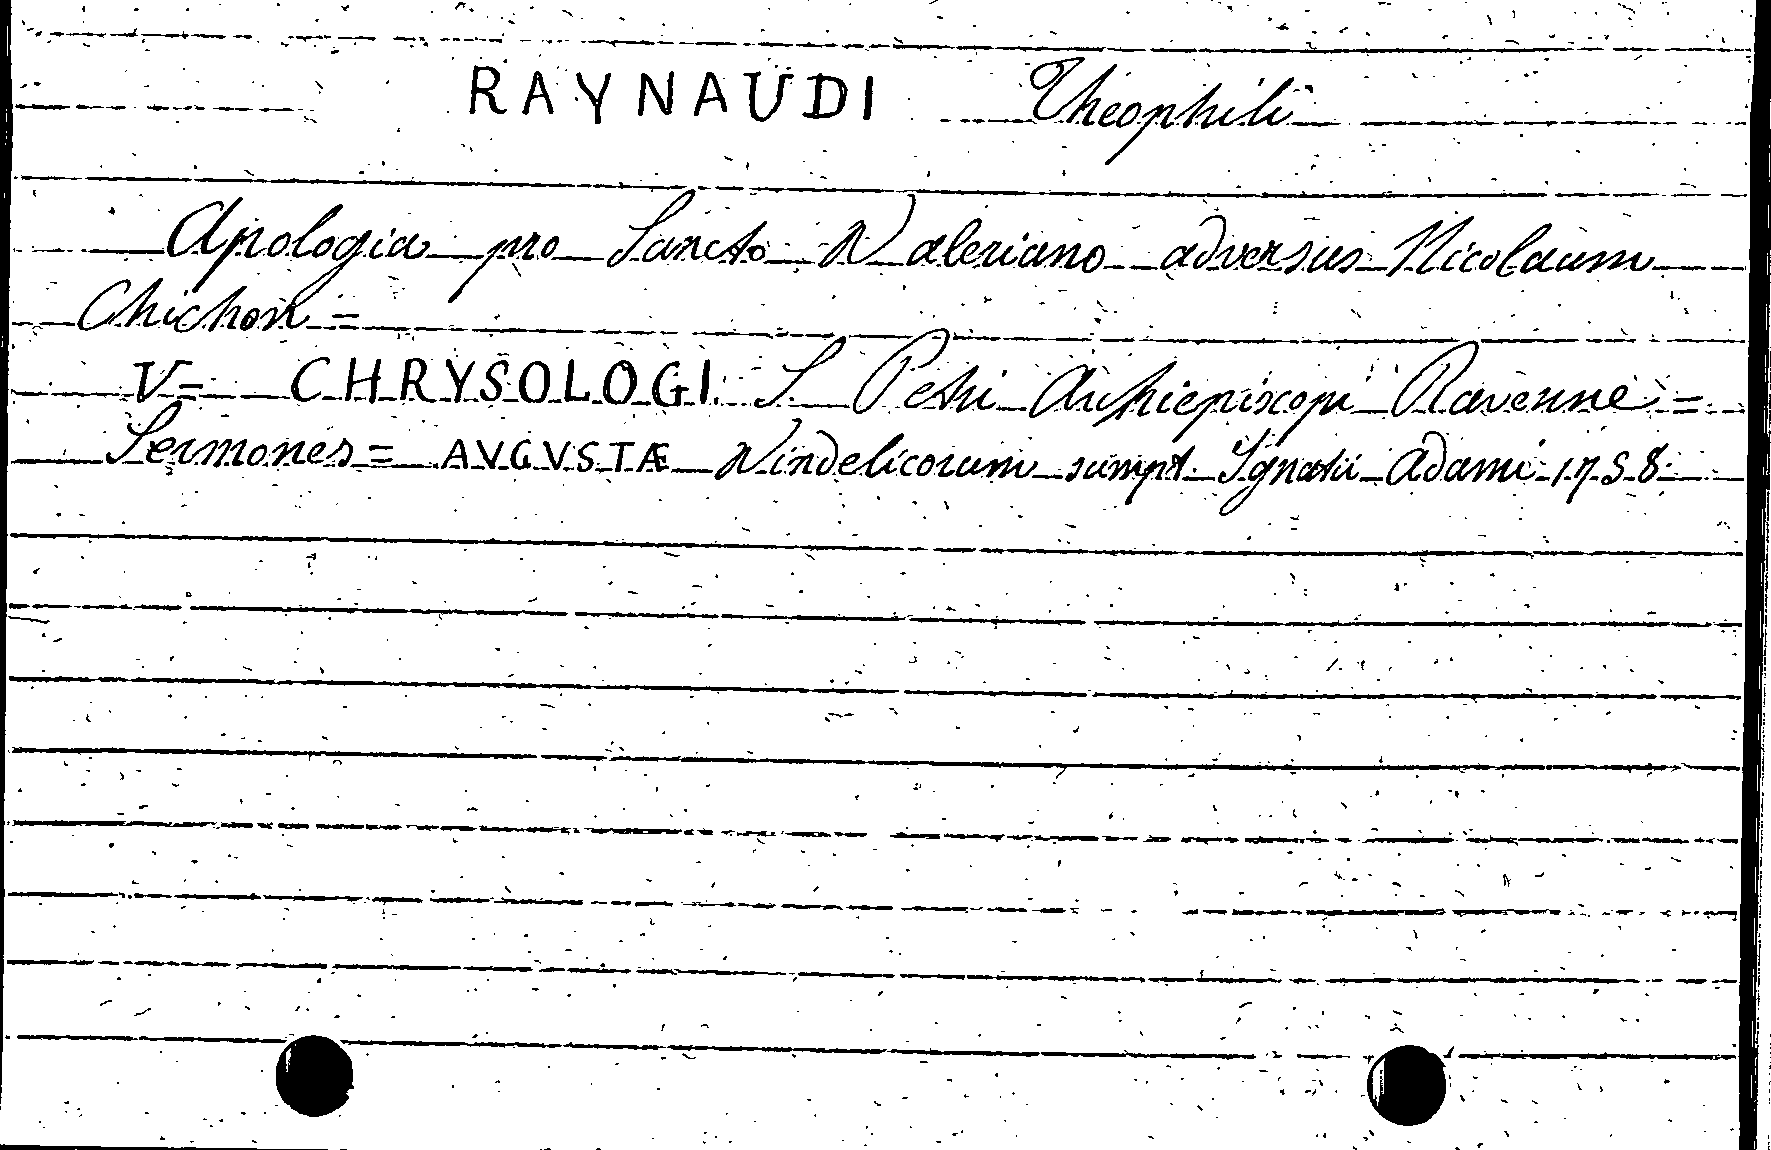 RAYNAUDI Theophili
Apologia pro Sancto Valeriano adversus Nicolaum
Chichon =
V= CHRYSOLOGI S. Petri Archiepiscopi Ravenne =
Sermones = AVGVSTÆ Vindelicorum sumpt. Ignatii Adami 1758